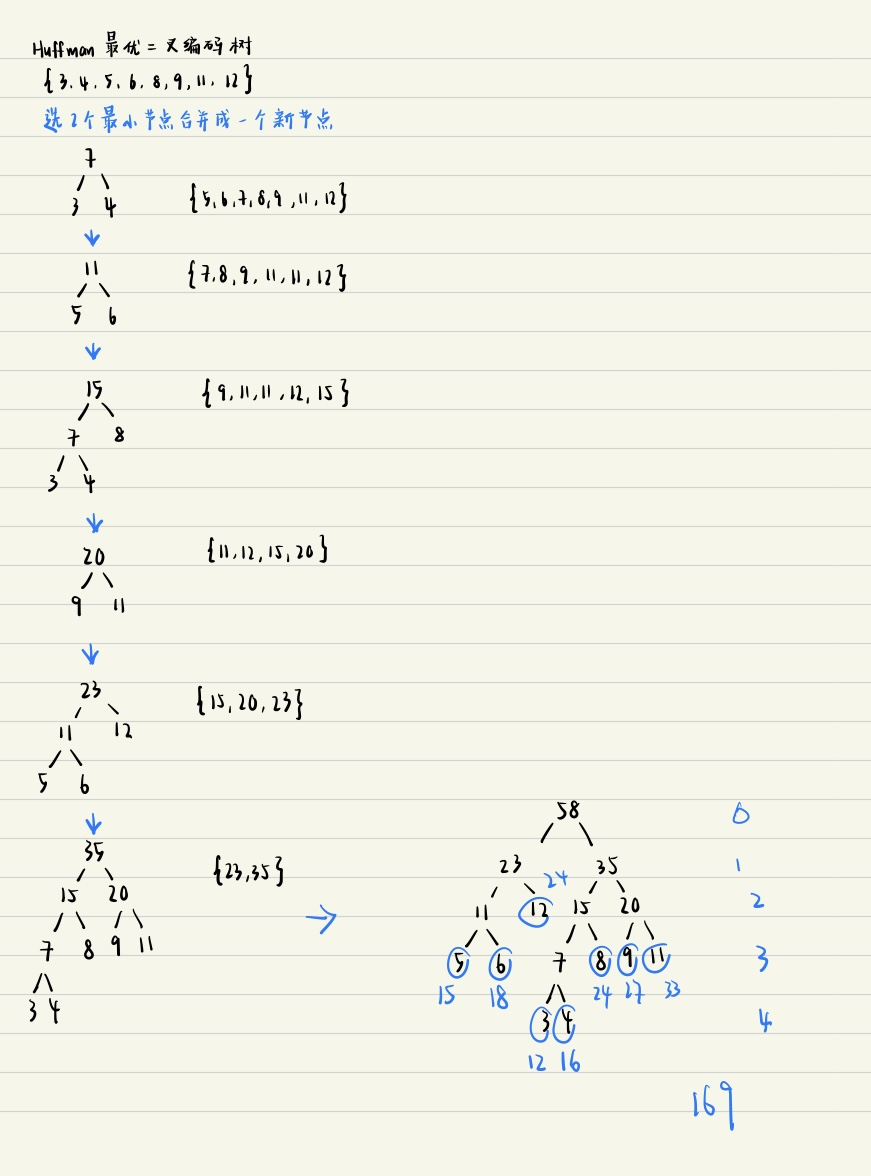 Huffman 最优二叉编码树
{3.4.5.6.8,9,11.12}
选2个最小节点合并成一个新节点
7
3 4
{5,6,7,8,9,11,12}
11
5 6
{7.8,9,11,11,12}
15
7 8
3 4
{9,11,11,12,15}
20
9 11
{11,12,15,20}
23
11 12
5 6
{15,20,23}
35
15 20
7 8 9 11
3 4
{23,35}
58 0
23 35 1
24
11 12 15 20 2
5 6 7 8 9 11 3
15 18 24 27 33
3 4 4
12 16
169